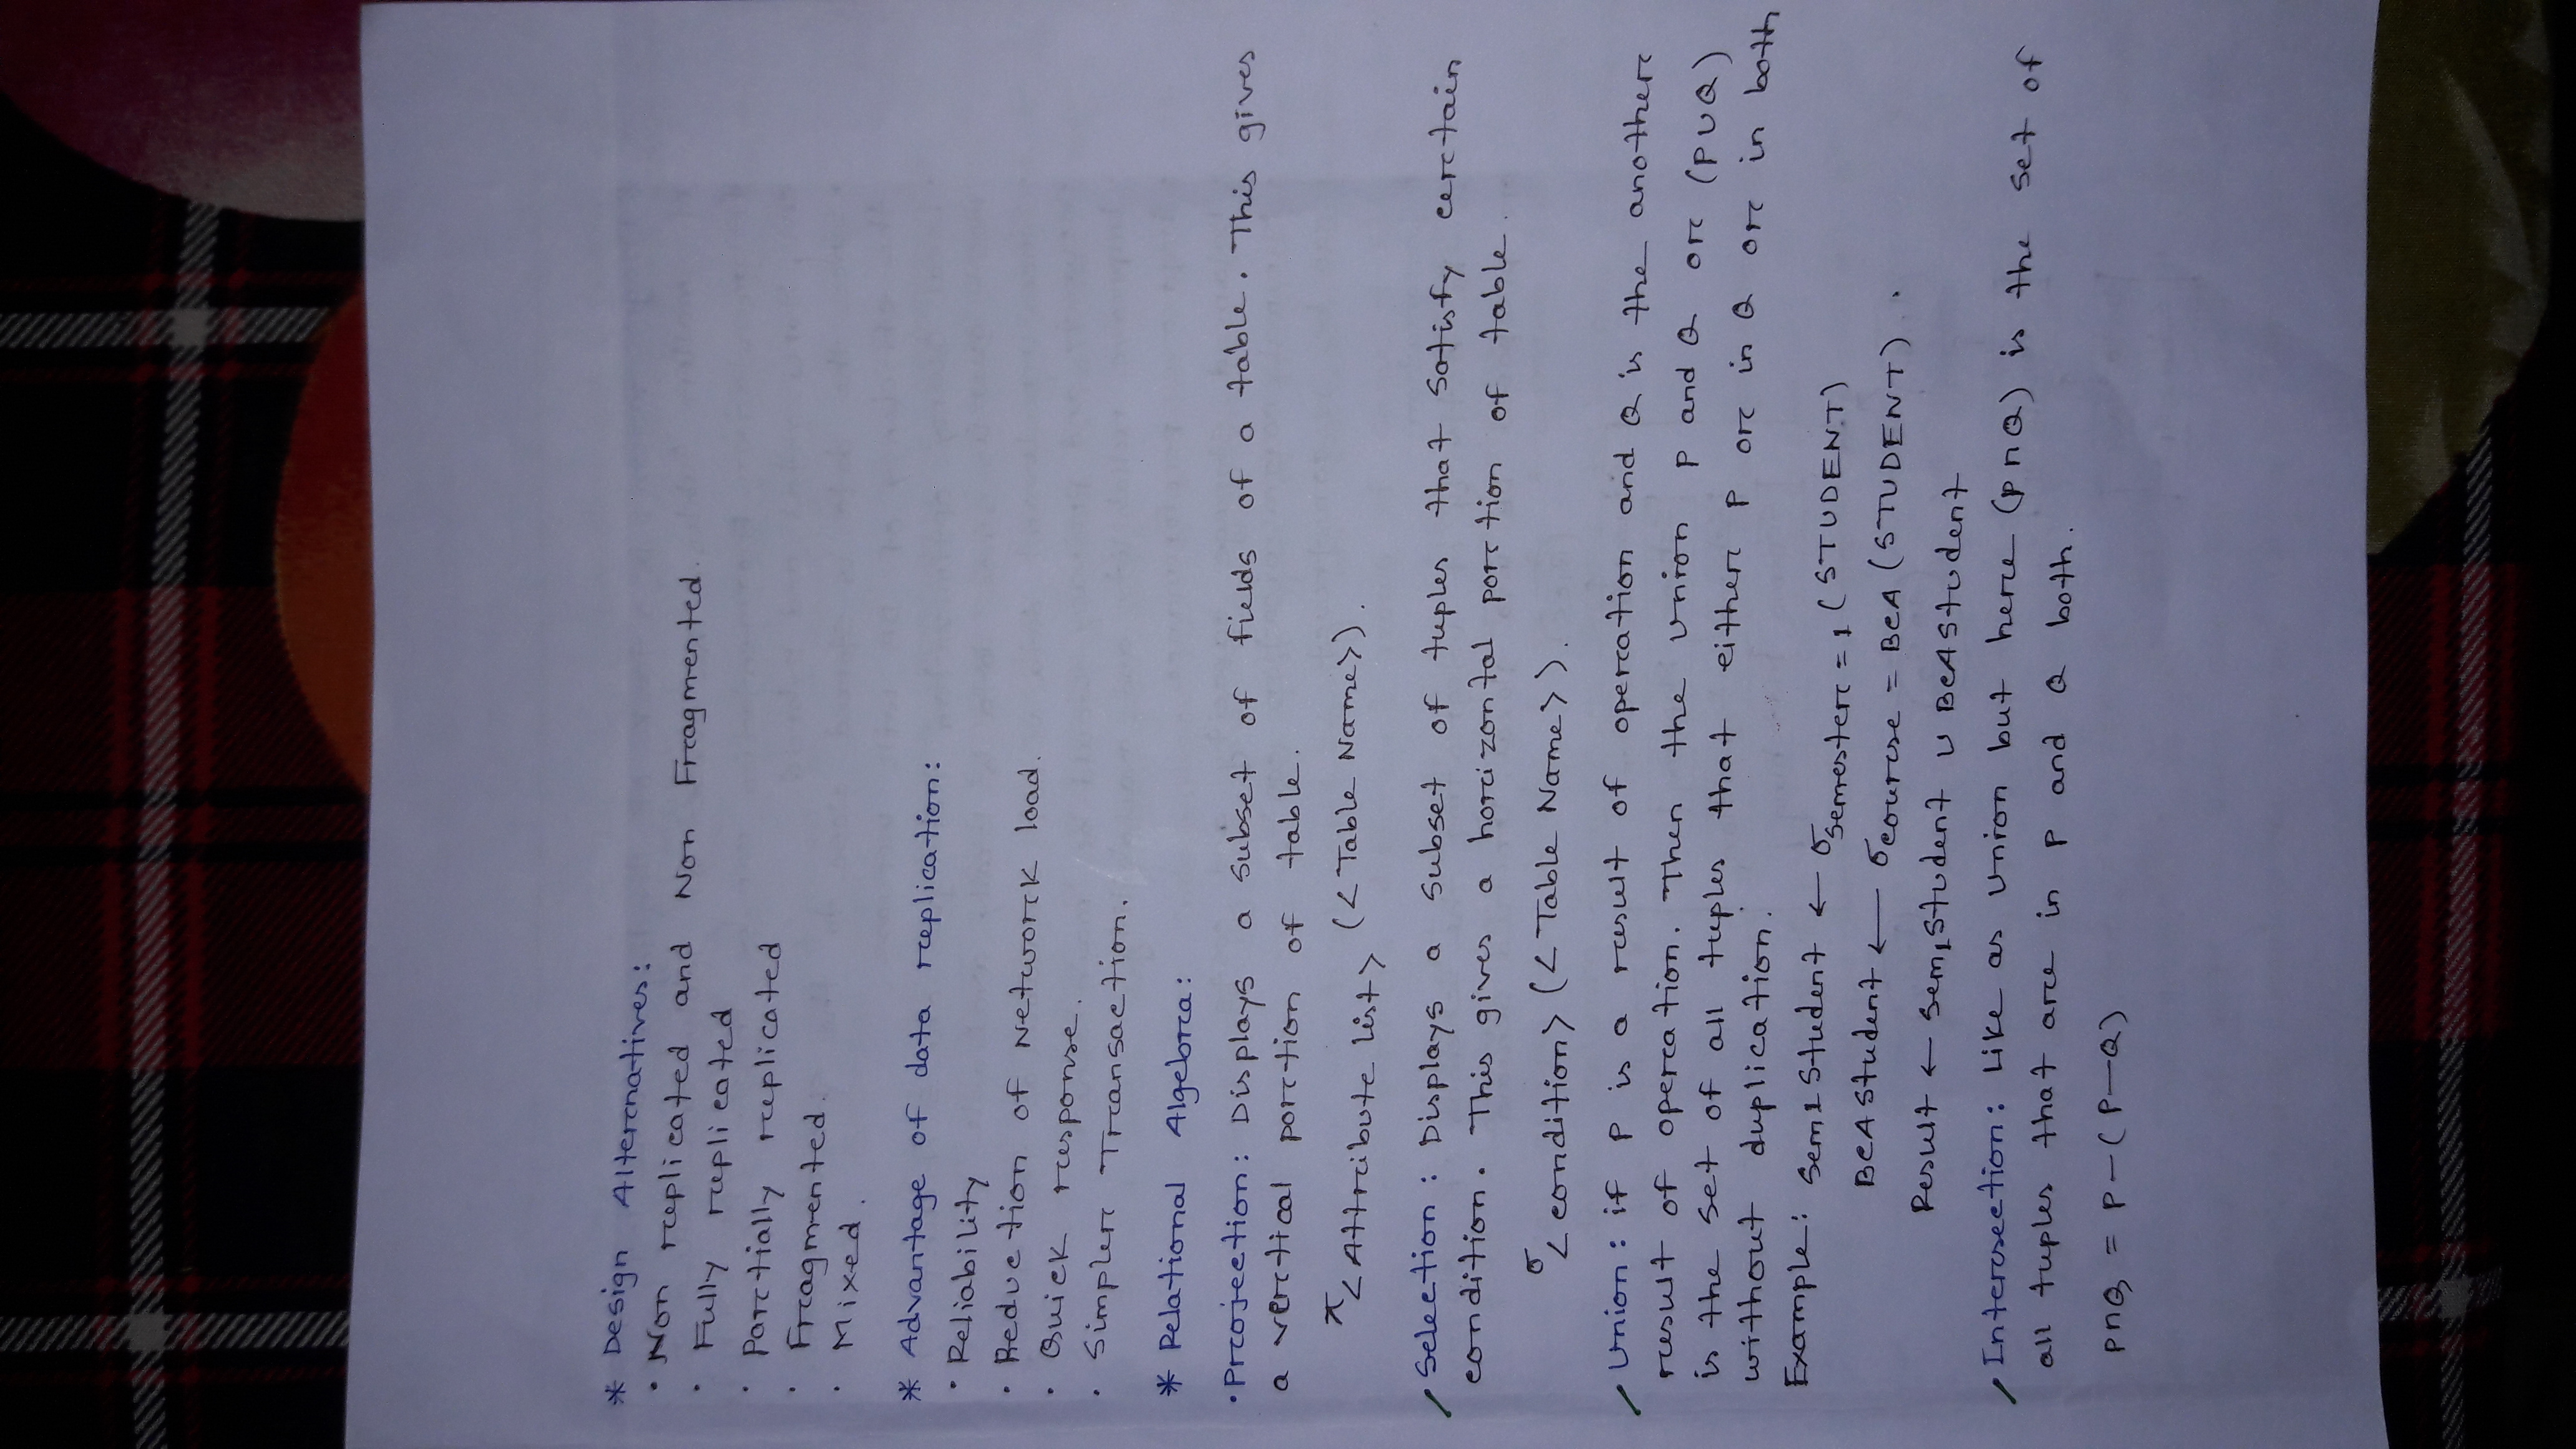 * Design Alternatives:
· Non replicated and Non Fragmented.
· Fully replicated
· Partially replicated
· Fragmented.
· Mixed.
* Advantage of data replication:
· Reliability
· Reduction of Network load.
· Quick response.
· Simpler Transaction.
* Relational Algebra:
· Projection: Displays a subset of fields of a table. This gives
a vertical portion of table.
π <Attribute list> (<Table Name>).
✓ Selection: Displays a subset of tuples that satisfy certain
condition. This gives a horizontal portion of table.
σ <condition> (<Table Name>).
✓ Union: if P is a result of operation and Q is the another
result of operation. Then the Union P and Q or (P∪Q)
is the set of all tuples that either P or in Q or in both
without duplication.
Example: Sem1Student ← σ Semester = 1 (STUDENT)
BCAStudent ← σ course = BCA (STUDENT).
Result ← Sem1Student ∪ BCAStudent
✓ Intersection: Like as Union but here (P∩Q) is the set of
all tuples that are in P and Q both.
P∩Q = P-(P-Q)